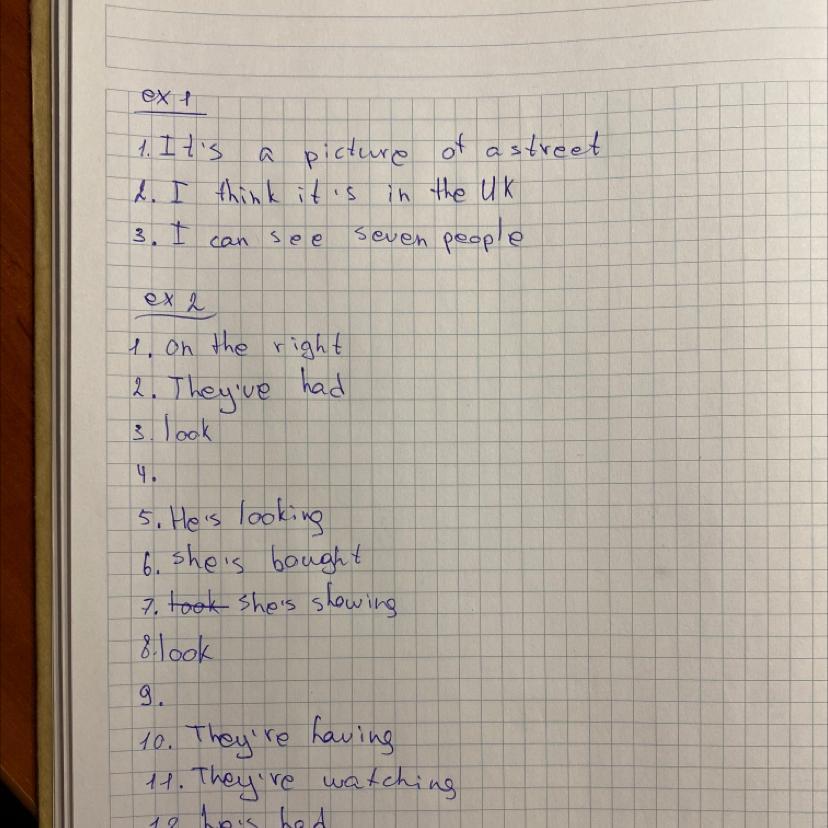 ex 1
1. It's a picture of a street
2. I think it's in the UK
3. I can see seven people
ex 2
1. on the right
2. They've had
3. look
4.
5. He's looking
6. she's bought
7. took she's showing
8. look
9.
10. They're having
11. They're watching
12. he's had